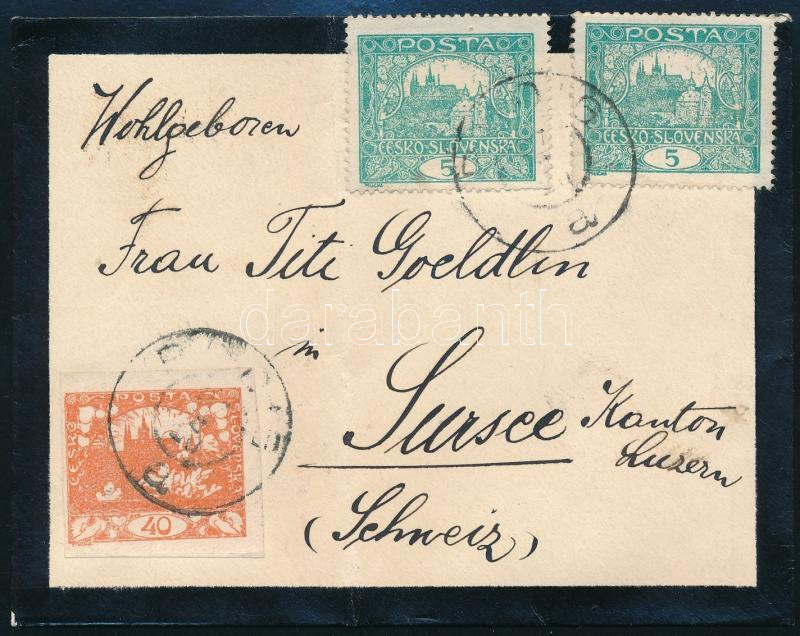 POSTA
ČESKO-SLOVENSKÁ
5
MUCHA
POSTA
ČESKO-SLOVENSKÁ
5
Wohlgeboren
Frau Tite Goeldlin
in
Sursee Kanton
Luzern
(Schweiz)
POSTA
ČESKO
SLOVENSKÁ
40
darabanth